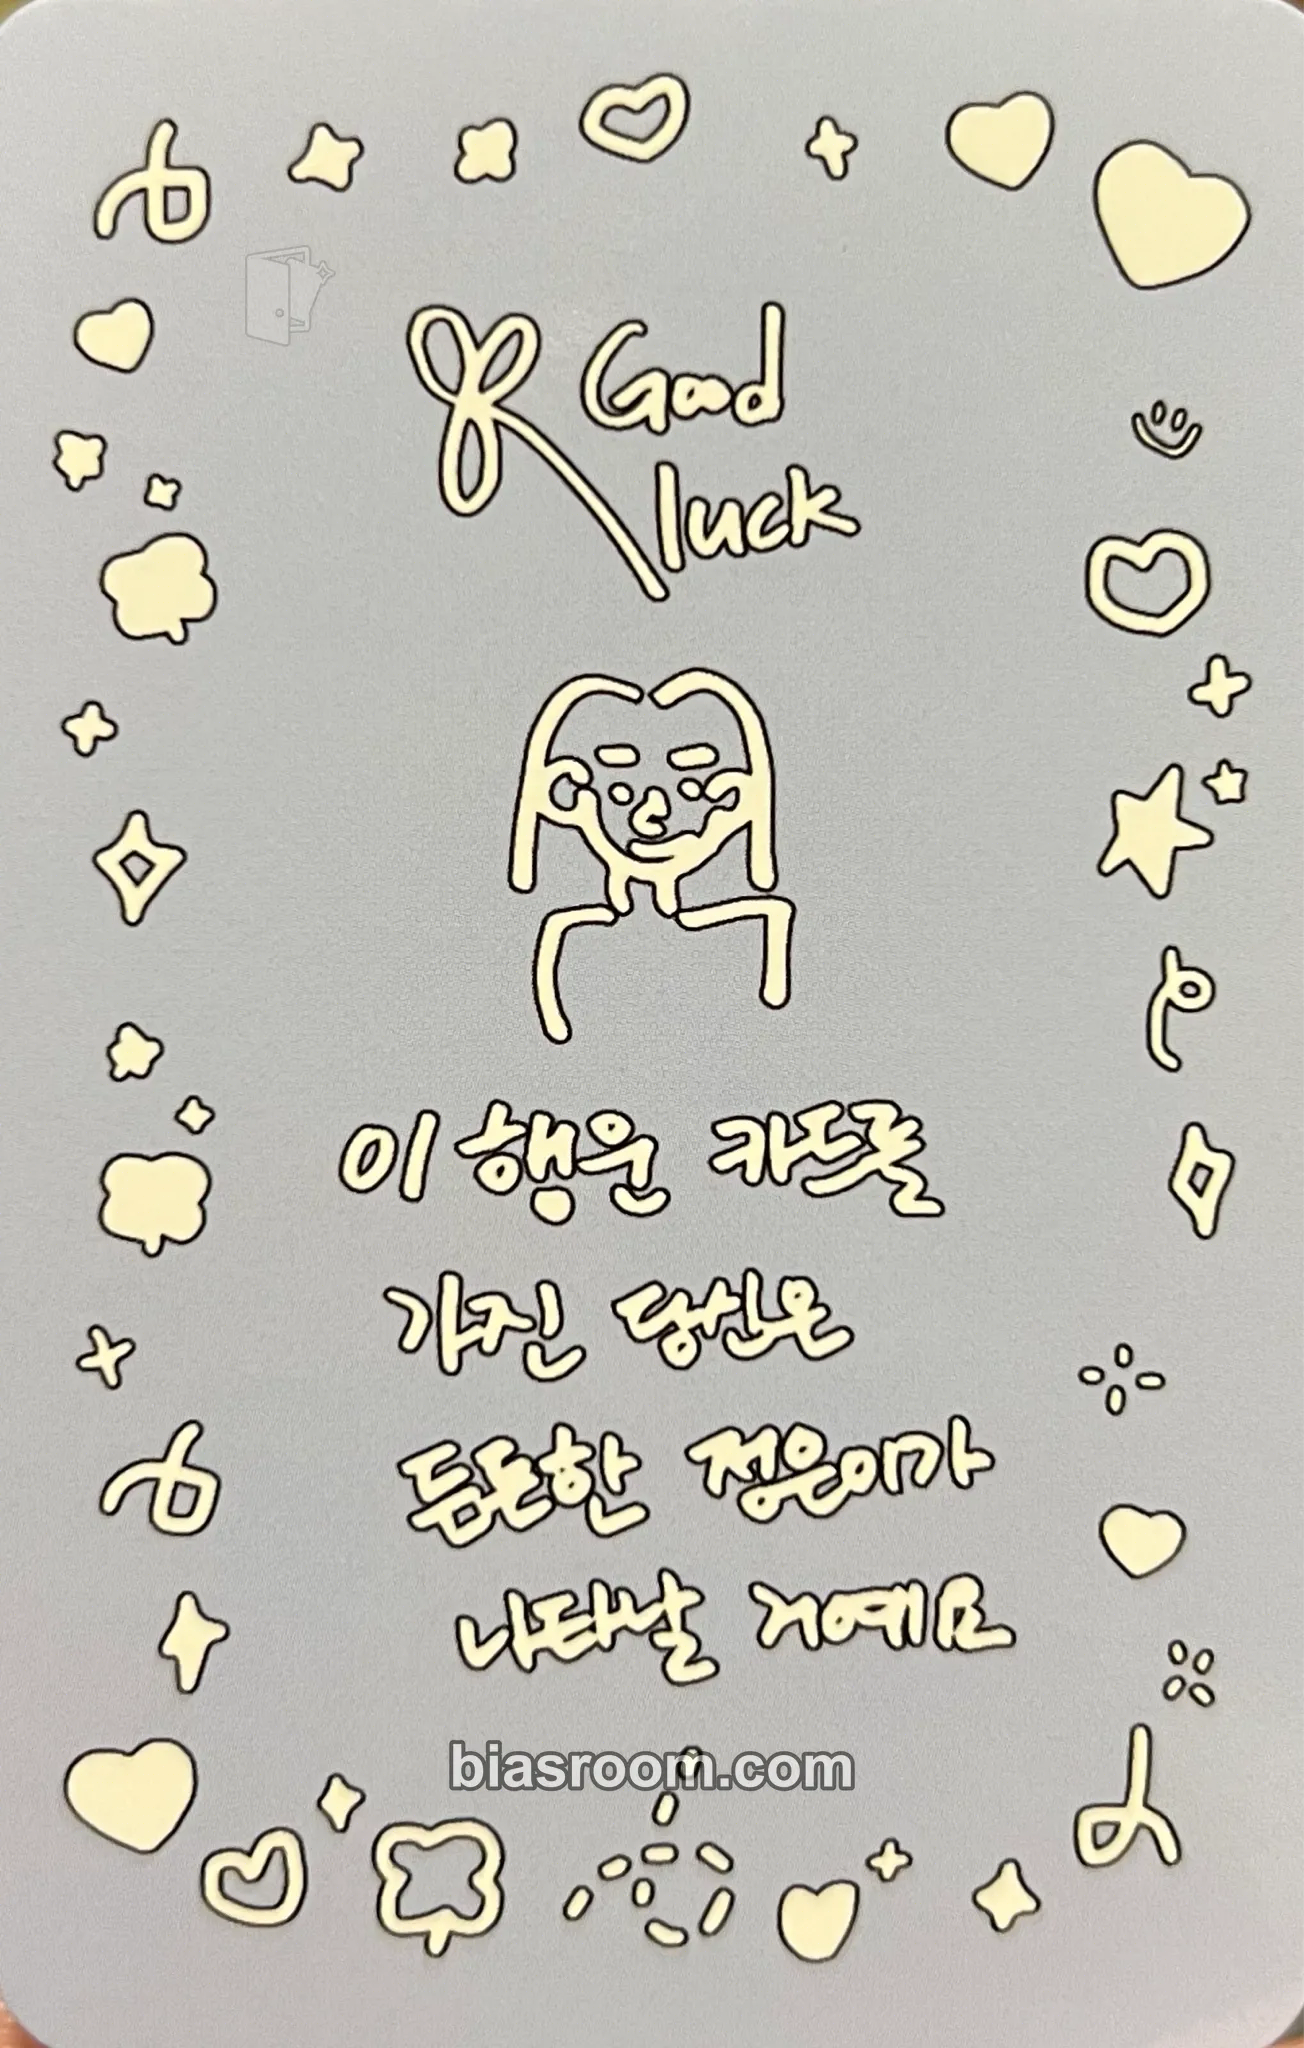 Good
luck
이 행운 카드를
가진 당신은
든든한 정은이가
나타날 거예요
biasroom.com